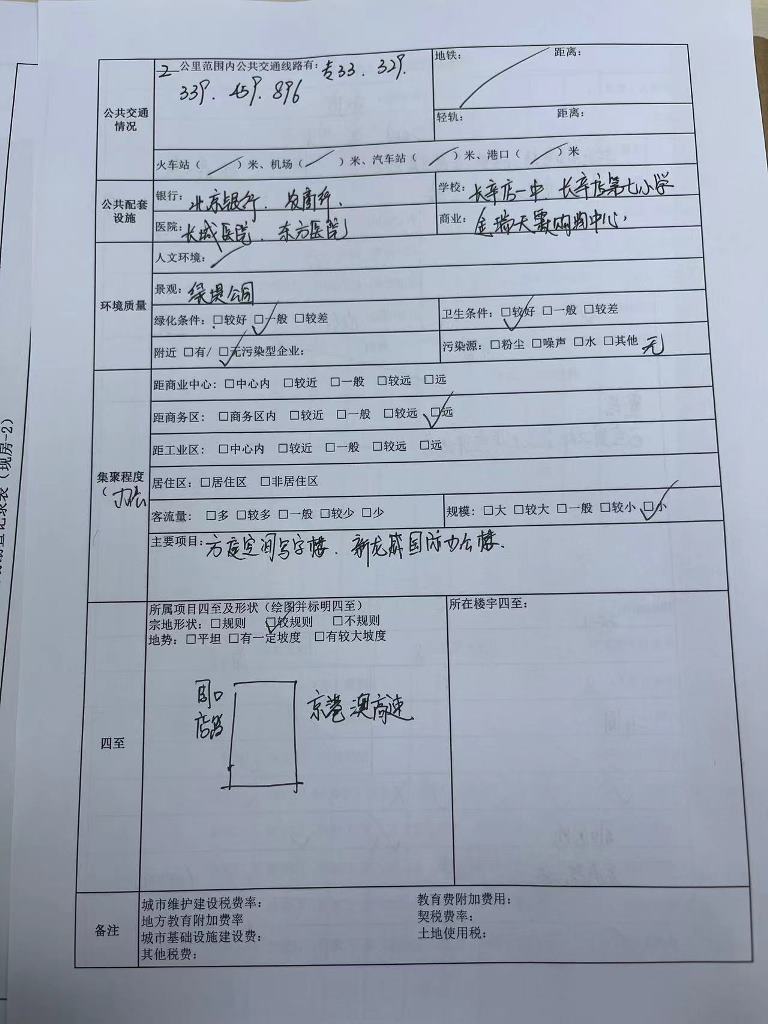 2 公里范围内公共交通线路有：专33、329、
339、459、896
地铁： 距离：
轻轨： 距离：
公共交通
情况
火车站（ ）米、机场（ ）米、汽车站（ ）米、港口（ ）米
公共配套
设施
银行：北京银行、农商行、
学校：长辛店一中、长辛店第七小学
医院：长城医院、东方医院
商业：金瑞天霖购物中心、
环境质量
人文环境：
景观：绿堤公园
绿化条件：□较好 ☑一般 □较差
卫生条件：☑较好 □一般 □较差
附近 □有/ ☑无污染型企业：
污染源：□粉尘 □噪声 □水 □其他 无
集聚程度
（办公
距商业中心：□中心内 □较近 □一般 □较远 □远
距商务区：□商务区内 □较近 □一般 □较远 ☑远
距工业区：□中心内 □较近 □一般 □较远 □远
居住区：□居住区 □非居住区
客流量：□多 □较多 □一般 □较少 □少
规模：□大 □较大 □一般 □较小 ☑小
主要项目：方庭空间写字楼、新龙威国际办公楼、
四至
所属项目四至及形状（绘图并标明四至）
宗地形状：□规则 ☑较规则 □不规则
地势：□平坦 □有一定坡度 □有较大坡度
京港澳高速
所在楼宇四至：
备注
城市维护建设税费率：
教育费附加费用：
地方教育附加费率
契税费率：
城市基础设施建设费：
土地使用税：
其他税费：